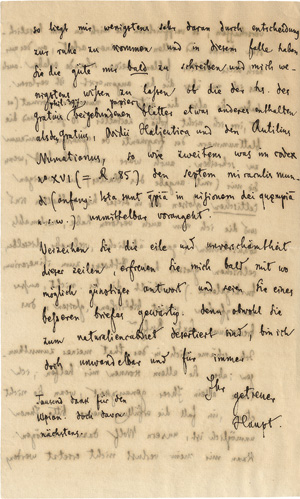 so liegt mir wenigstens sehr daran durch entscheidung
zur ruhe zu kommen und in diesem falle haben
Sie die güte mir bald zu schreiben und mich we-
nigstens wissen zu lassen ob die der hs. des
Gratius beigebundenen blätter etwas anderes enthalten
als des Gratius, Ovidii Halieutica und den Rutilius
Numatianus, so wie zweitens, was im codex
no XVI (= L. 85.) den septem miraculis mun-
di (anfang: Ista sunt
u.s.w.) unmittelbar vorangeht.
Verzeihen Sie die eile und unverschämtheit
dieser zeilen, erfreuen Sie mich bald mit wo
möglich günstiger antwort und seien Sie eines
besseren briefes gewärtig. denn obwohl Sie
zum naturaliencabinet desertiert sind, bin ich
doch unwandelbar und für immer
Ihr getreuer
Haupt.
Tausend dank für den
Ulpian. doch davon
nächstens.